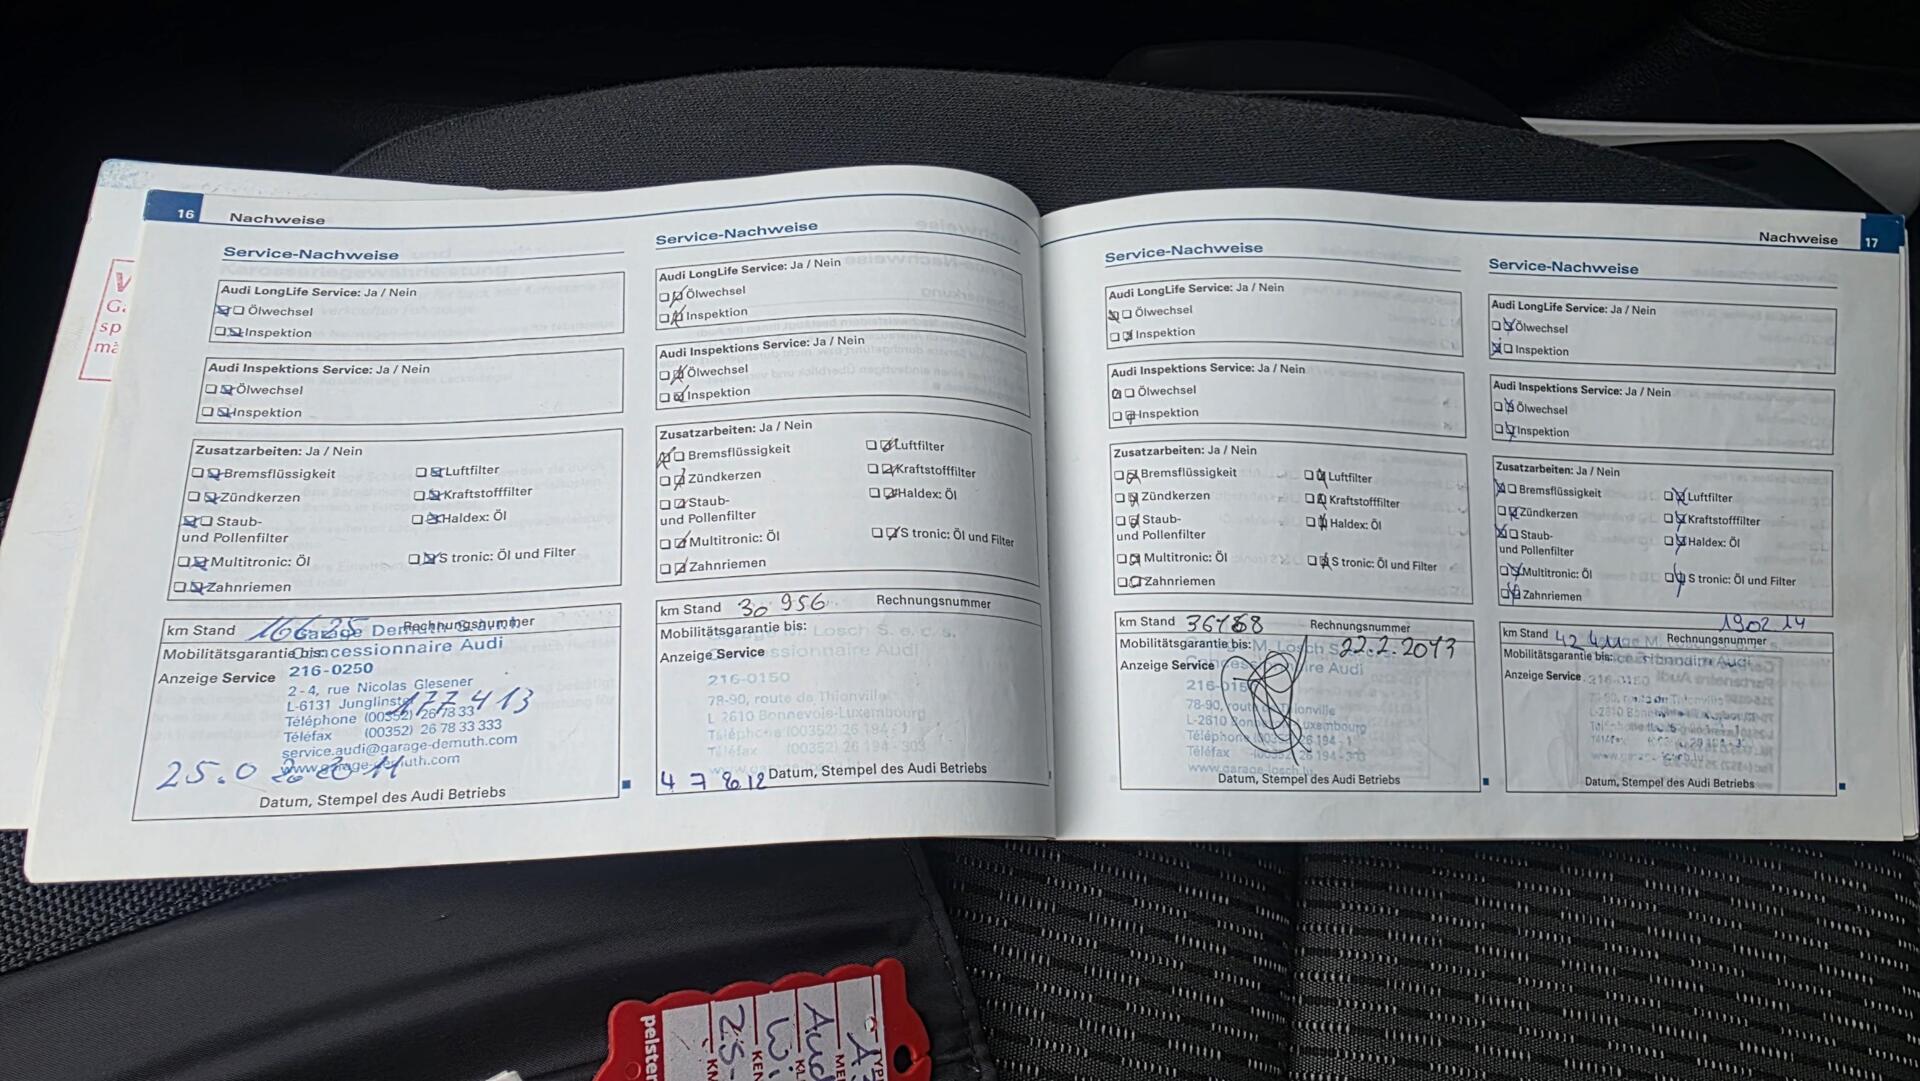 16 Nachweise
Service-Nachweise
Audi LongLife Service: Ja / Nein
Ölwechsel
Inspektion
Audi Inspektions Service: Ja / Nein
Ölwechsel
Inspektion
Zusatzarbeiten: Ja / Nein
Bremsflüssigkeit
Luftfilter
Zündkerzen
Kraftstofffilter
Staub-
und Pollenfilter
Haldex: Öl
Multitronic: Öl
S tronic: Öl und Filter
Zahnriemen
km Stand Rechnungsnummer
Garage Demuth
Mobilitätsgarantie bis:
Concessionnaire Audi
Anzeige Service
216-0250
2-4, rue Nicolas Glesener
L-6131 Junglinster
177413
Téléphone (00352) 26 78 33
Téléfax (00352) 26 78 33 333
service.audi@garage-demuth.com
www.garage-demuth.com
Datum, Stempel des Audi Betriebs
Service-Nachweise
Audi LongLife Service: Ja / Nein
Ölwechsel
Inspektion
Audi Inspektions Service: Ja / Nein
Ölwechsel
Inspektion
Zusatzarbeiten: Ja / Nein
Bremsflüssigkeit
Luftfilter
Zündkerzen
Kraftstofffilter
Staub-
und Pollenfilter
Haldex: Öl
Multitronic: Öl
S tronic: Öl und Filter
Zahnriemen
km Stand 30 956 Rechnungsnummer
Mobilitätsgarantie bis:
M. Losch S. e. c. s.
Anzeige Service
Concessionnaire Audi
216-0150
78-90, route de Thionville
L-2610 Bonnevoie-Luxembourg
Téléphone (00352) 26 194 - 1
Téléfax (00352) 26 194 - 303
www.garage-losch.lu
4 7 2012 Datum, Stempel des Audi Betriebs
Nachweise 17
Service-Nachweise
Audi LongLife Service: Ja / Nein
Ölwechsel
Inspektion
Audi Inspektions Service: Ja / Nein
Ölwechsel
Inspektion
Zusatzarbeiten: Ja / Nein
Bremsflüssigkeit
Luftfilter
Zündkerzen
Kraftstofffilter
Staub-
und Pollenfilter
Haldex: Öl
Multitronic: Öl
S tronic: Öl und Filter
Zahnriemen
km Stand Rechnungsnummer
Mobilitätsgarantie bis: 22.2.2013
M. Losch
Anzeige Service
Concessionnaire Audi
216-0150
78-90, route de Thionville
L-2610 Bonnevoie-Luxembourg
Téléphone (00352) 26 194 - 1
Téléfax (00352) 26 194 - 303
www.garage-losch.lu
Datum, Stempel des Audi Betriebs
Service-Nachweise
Audi LongLife Service: Ja / Nein
Ölwechsel
Inspektion
Audi Inspektions Service: Ja / Nein
Ölwechsel
Inspektion
Zusatzarbeiten: Ja / Nein
Bremsflüssigkeit
Luftfilter
Zündkerzen
Kraftstofffilter
Staub-
und Pollenfilter
Haldex: Öl
Multitronic: Öl
S tronic: Öl und Filter
Zahnriemen
190214
km Stand 42 411 Rechnungsnummer
Mobilitätsgarantie bis:
Anzeige Service
216-0150
Datum, Stempel des Audi Betriebs
pelster